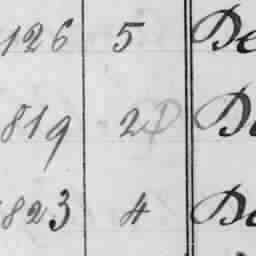 126 5 De
819 2 De
823 4 De